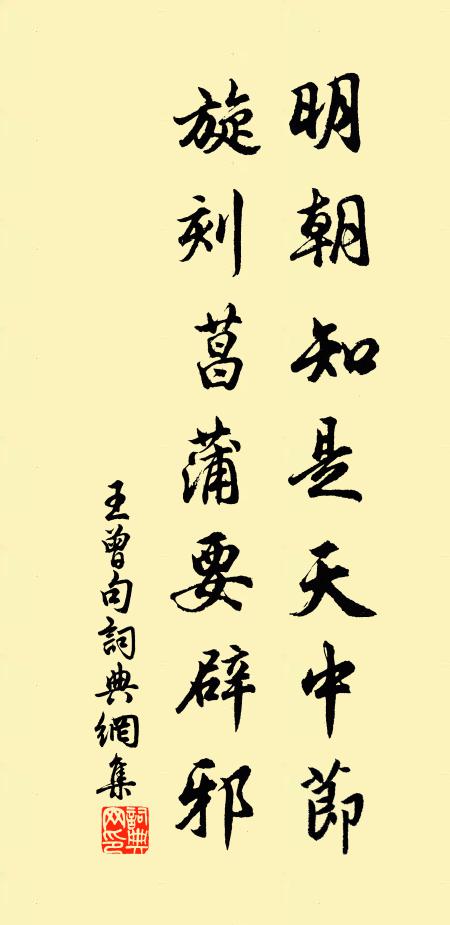 明朝知是天中節
旋刻菖蒲要辟邪
王曾句詞典網集
詞典網印